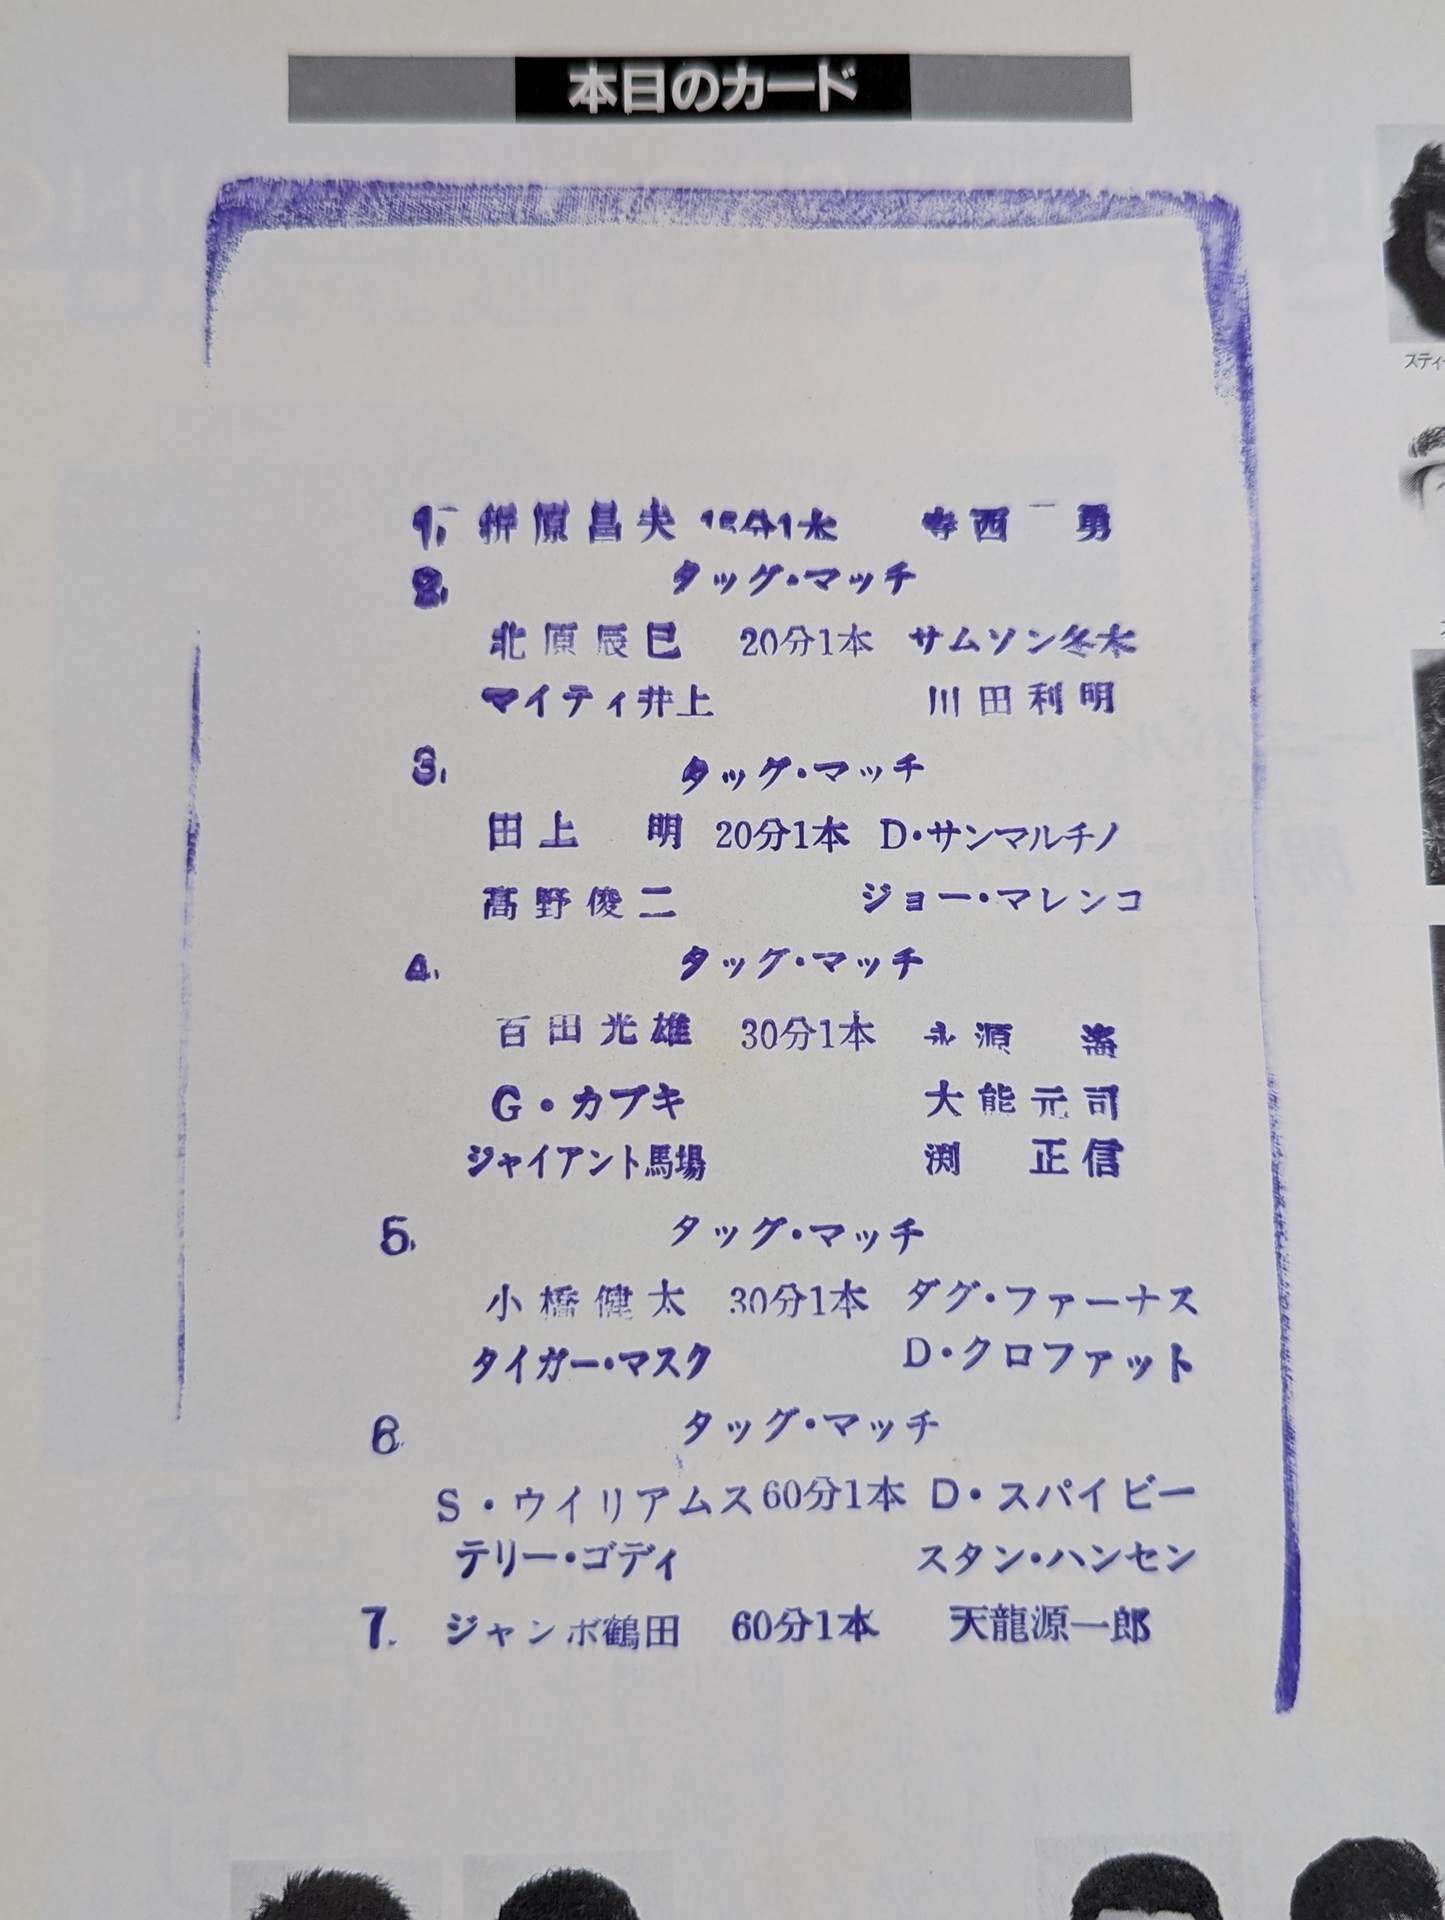 本日のカード
1. 榊原昌夫 15分1本 寺西 勇
2. タッグ・マッチ
北原辰巳 20分1本 サムソン冬木
マイティ井上 川田利明
3. タッグ・マッチ
田上 明 20分1本 D・サンマルチノ
高野俊二 ジョー・マレンコ
4. タッグ・マッチ
百田光雄 30分1本 永源 遙
G・カブキ 大熊元司
ジャイアント馬場 渕 正信
5. タッグ・マッチ
小橋健太 30分1本 ダグ・ファーナス
タイガー・マスク D・クロファット
6 タッグ・マッチ
S・ウイリアムス 60分1本 D・スパイビー
テリー・ゴディ スタン・ハンセン
7. ジャンボ鶴田 60分1本 天龍源一郎
スティ